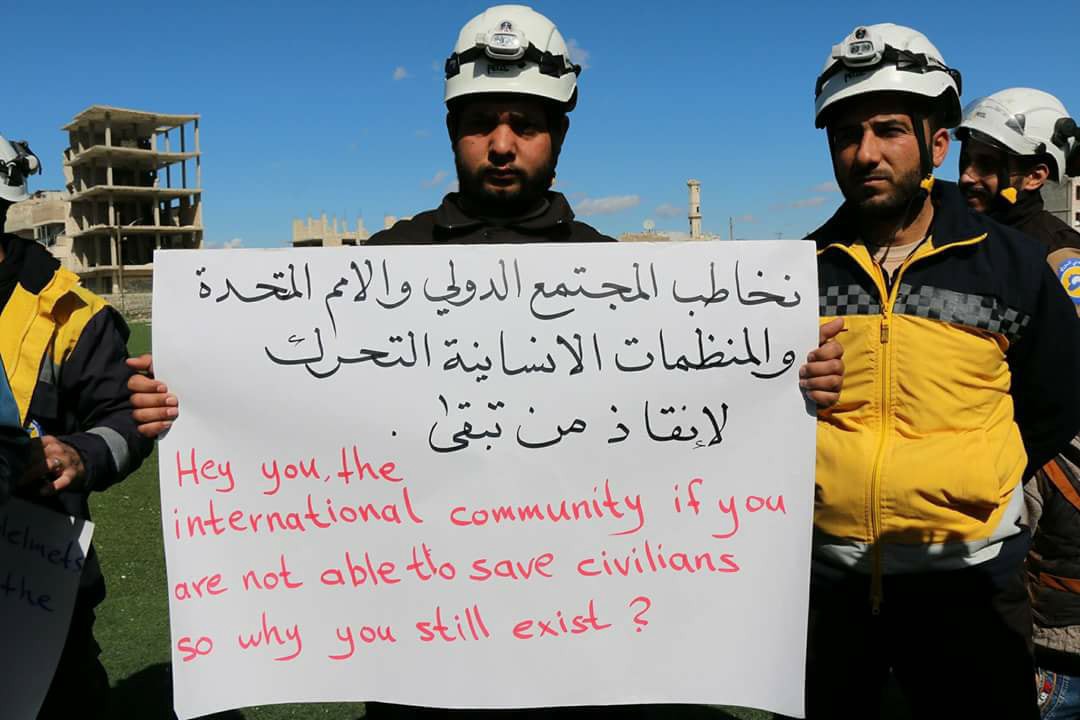 نخاطب المجتمع الدولي والامم المتحدة
والمنظمات الانسانية التحرك
لإنقاذ من تبقى .
Hey you, the
international community if you
are not able to save civilians
so why you still exist ?
Helmets
the